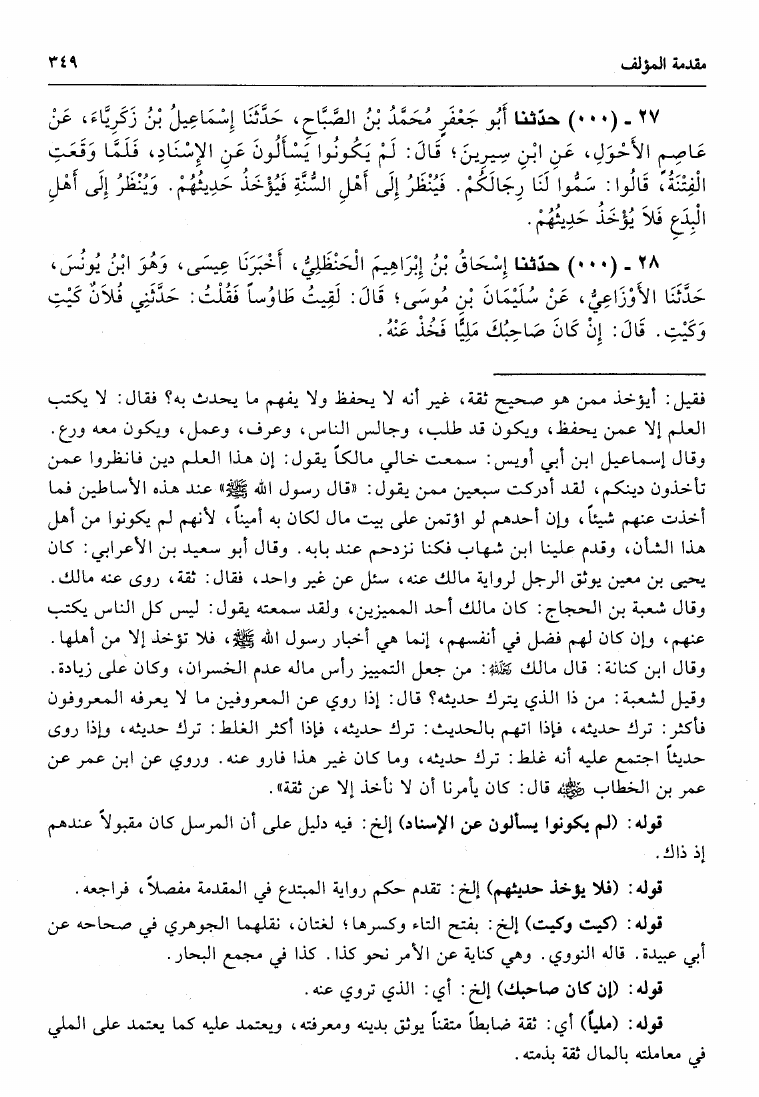 مقدمة المؤلف ٣٤٩
٢٧ ـ (٠٠٠) حدّثنا أَبُو جَعْفَرٍ مُحَمَّدُ بْنُ الصَّبَّاحِ، حَدَّثَنَا إِسْمَاعِيلُ بْنُ زَكَرِيَّاءَ، عَنْ
عَاصِمٍ الأَحْوَلِ، عَنِ ابْنِ سِيرِينَ؛ قَالَ: لَمْ يَكُونُوا يَسْأَلُونَ عَنِ الإِسْنَادِ، فَلَمَّا وَقَعَتِ
الْفِتْنَةُ، قَالُوا: سَمُّوا لَنَا رِجَالَكُمْ. فَيُنْظَرُ إِلَى أَهْلِ السُّنَّةِ فَيُؤْخَذُ حَدِيثُهُمْ. وَيُنْظَرُ إِلَى أَهْلِ
الْبِدَعِ فَلاَ يُؤْخَذُ حَدِيثُهُمْ.
٢٨ ـ (٠٠٠) حدّثنا إِسْحَاقُ بْنُ إِبْرَاهِيمَ الْحَنْظَلِيُّ، أَخْبَرَنَا عِيسَى، وَهُوَ ابْنُ يُونُسَ،
حَدَّثَنَا الأَوْزَاعِيُّ، عَنْ سُلَيْمَانَ بْنِ مُوسَى؛ قَالَ: لَقِيتُ طَاوُساً فَقُلْتُ: حَدَّثَنِي فُلاَنٌ كَيْتِ
وَكَيْتِ. قَالَ: إِنْ كَانَ صَاحِبُكَ مَلِيًّا فَخُذْ عَنْهُ.
فقيل: أيؤخذ ممن هو صحيح ثقة، غير أنه لا يحفظ ولا يفهم ما يحدث به؟ فقال: لا يكتب
العلم إلا عمن يحفظ، ويكون قد طلب، وجالس الناس، وعرف، وعمل، ويكون معه ورع.
وقال إسماعيل ابن أبي أويس: سمعت خالي مالكاً يقول: إن هذا العلم دين فانظروا عمن
تأخذون دينكم، لقد أدركت سبعين ممن يقول: «قال رسول الله ﷺ» عند هذه الأساطين فما
أخذت عنهم شيئاً، وإن أحدهم لو اؤتمن على بيت مال لكان به أميناً، لأنهم لم يكونوا من أهل
هذا الشأن، وقدم علينا ابن شهاب فكنا نزدحم عند بابه. وقال أبو سعيد بن الأعرابي: كان
يحيى بن معين يوثق الرجل لرواية مالك عنه، سئل عن غير واحد، فقال: ثقة، روى عنه مالك.
وقال شعبة بن الحجاج: كان مالك أحد المميزين، ولقد سمعته يقول: ليس كل الناس يكتب
عنهم، وإن كان لهم فضل في أنفسهم، إنما هي أخبار رسول الله ﷺ، فلا تؤخذ إلا من أهلها.
وقال ابن كنانة: قال مالك رحمه الله: من جعل التمييز رأس ماله عدم الخسران، وكان على زيادة.
وقيل لشعبة: من ذا الذي يترك حديثه؟ قال: إذا روي عن المعروفين ما لا يعرفه المعروفون
فأكثر: ترك حديثه، فإذا اتهم بالحديث: ترك حديثه، فإذا أكثر الغلط: ترك حديثه، وإذا روى
حديثاً اجتمع عليه أنه غلط: ترك حديثه، وما كان غير هذا فارو عنه. وروي عن ابن عمر عن
عمر بن الخطاب رضي الله عنه قال: كان يأمرنا أن لا نأخذ إلا عن ثقة».
قوله: (لم يكونوا يسألون عن الإسناد) إلخ: فيه دليل على أن المرسل كان مقبولاً عندهم
إذ ذاك.
قوله: (فلا يؤخذ حديثهم) إلخ: تقدم حكم رواية المبتدع في المقدمة مفصلاً، فراجعه.
قوله: (كيت وكيت) إلخ: بفتح التاء وكسرها؛ لغتان، نقلهما الجوهري في صحاحه عن
أبي عبيدة. قاله النووي. وهي كناية عن الأمر نحو كذا. كذا في مجمع البحار.
قوله: (إن كان صاحبك) إلخ: أي: الذي تروي عنه.
قوله: (ملياً) أي: ثقة ضابطاً متقناً يوثق بدينه ومعرفته، ويعتمد عليه كما يعتمد على الملي
في معاملته بالمال ثقة بذمته.